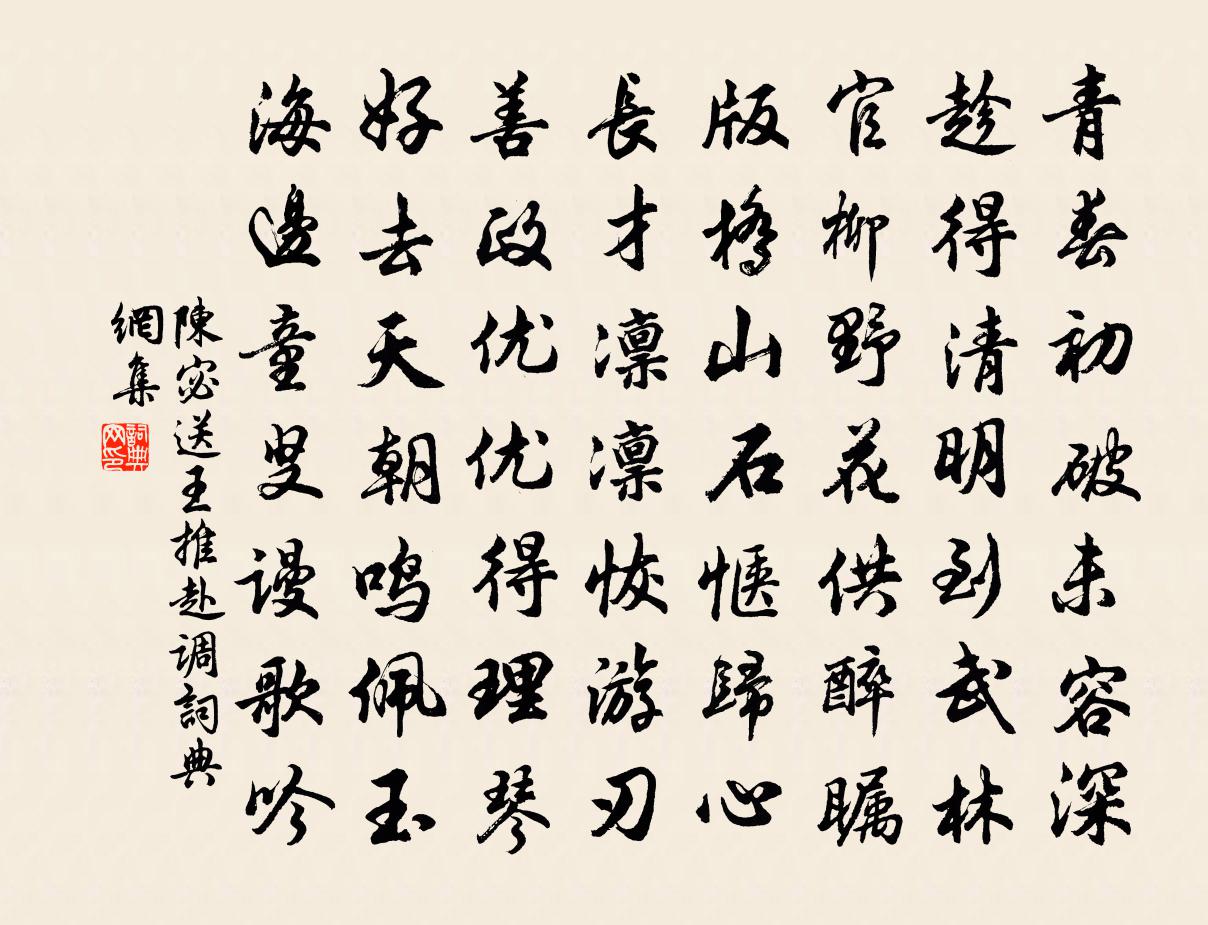 青春初破未容深
趁得清明到武林
官柳野花供醉瞩
版桥山石惬歸心
長才凛凛恢游刃
善政优优得理琴
好去天朝鸣佩玉
海邊童叟谩歌吟
陳宓送王推赴调詞典
網集
詞典网印